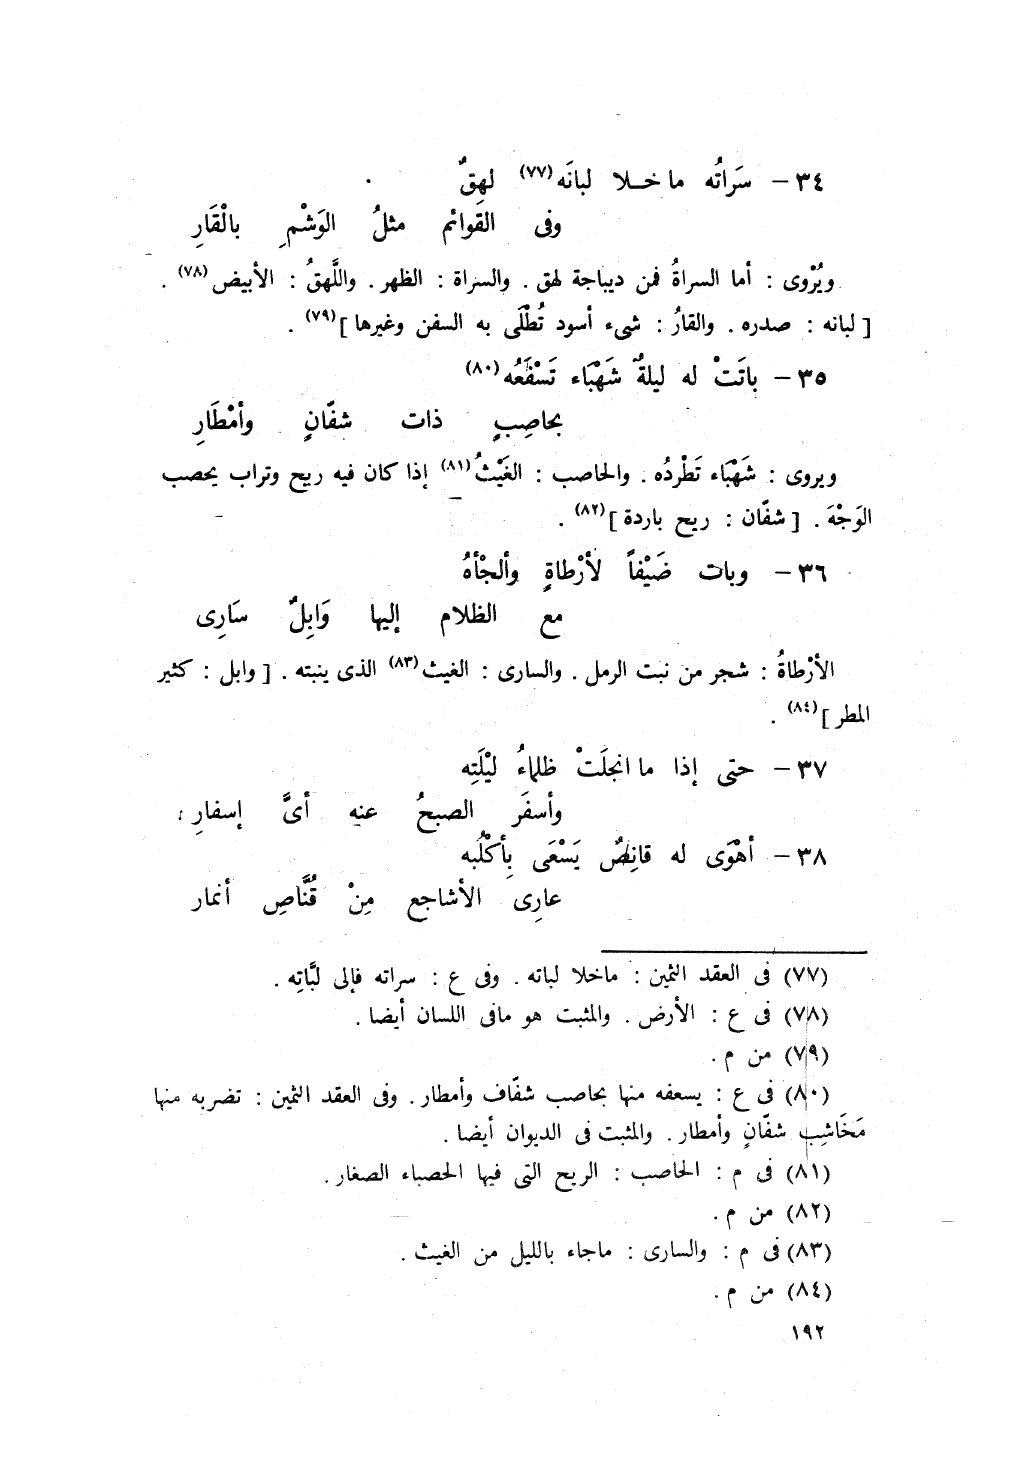 ٣٤ – سَراتُه ما خـلا لبانَه(٧٧) لهِقٌ
وفى القوائم مثلُ الوَشْمِ بالْقَارِ
ويُرْوى : أما السراةُ فمن ديباجة لهق . والسراة : الظهر . واللَّهقُ : الأبيض(٧٨) .
[ لبانه : صدره . والقارُ : شىء أسود تُطْلَى به السفن وغيرها ](٧٩) .
٣٥ – باتَتْ له ليلةٌ شَهْبَاء تَسْفَعُه(٨٠)
بحاصِبٍ ذات شفّانٍ وأمْطَارِ
ويروى : شَهْبَاء تَطْردُه . والحاصب : الغَيْثُ(٨١) إذا كان فيه ريح وتراب يحصب
الوَجْهَ . [ شفّان : ريح باردة ](٨٢) .
٣٦ – وبات ضَيْفاً لأرْطاةٍ وألجْأهُ
مع الظلام إليها وَابِلٌ سَارِى
الأرْطاةُ : شجر من نبت الرمل . والسارى : الغيث(٨٣) الذى ينبته . [ وابل : كثير
المطر ](٨٤) .
٣٧ – حتى إذا ما انجلَتْ ظلماءُ ليْلَتِه
وأسفَر الصبحُ عنه أىَّ إسفارِ
٣٨ – أهْوَى له قانِصٌ يَسْعَى بِأكْلُبه
عارِى الأشاجع مِنْ قُنَّاصِ أنمار
(٧٧) فى العقد الثمين : ماخلا لباته . وفى ع : سراته فإلى لبَّاتِه .
(٧٨) فى ع : الأرض . والمثبت هو مافى اللسان أيضا .
(٧٩) من م .
(٨٠) فى ع : يسعفه منها بحاصب شفّاف وأمطار . وفى العقد الثمين : تضربه منها
مَخَاشِب شفّانٍ وأمطار . والمثبت فى الديوان أيضا .
(٨١) فى م : الحاصب : الريح التى فيها الحصباء الصغار .
(٨٢) من م .
(٨٣) فى م : والسارى : ماجاء بالليل من الغيث .
(٨٤) من م .
١٩٢